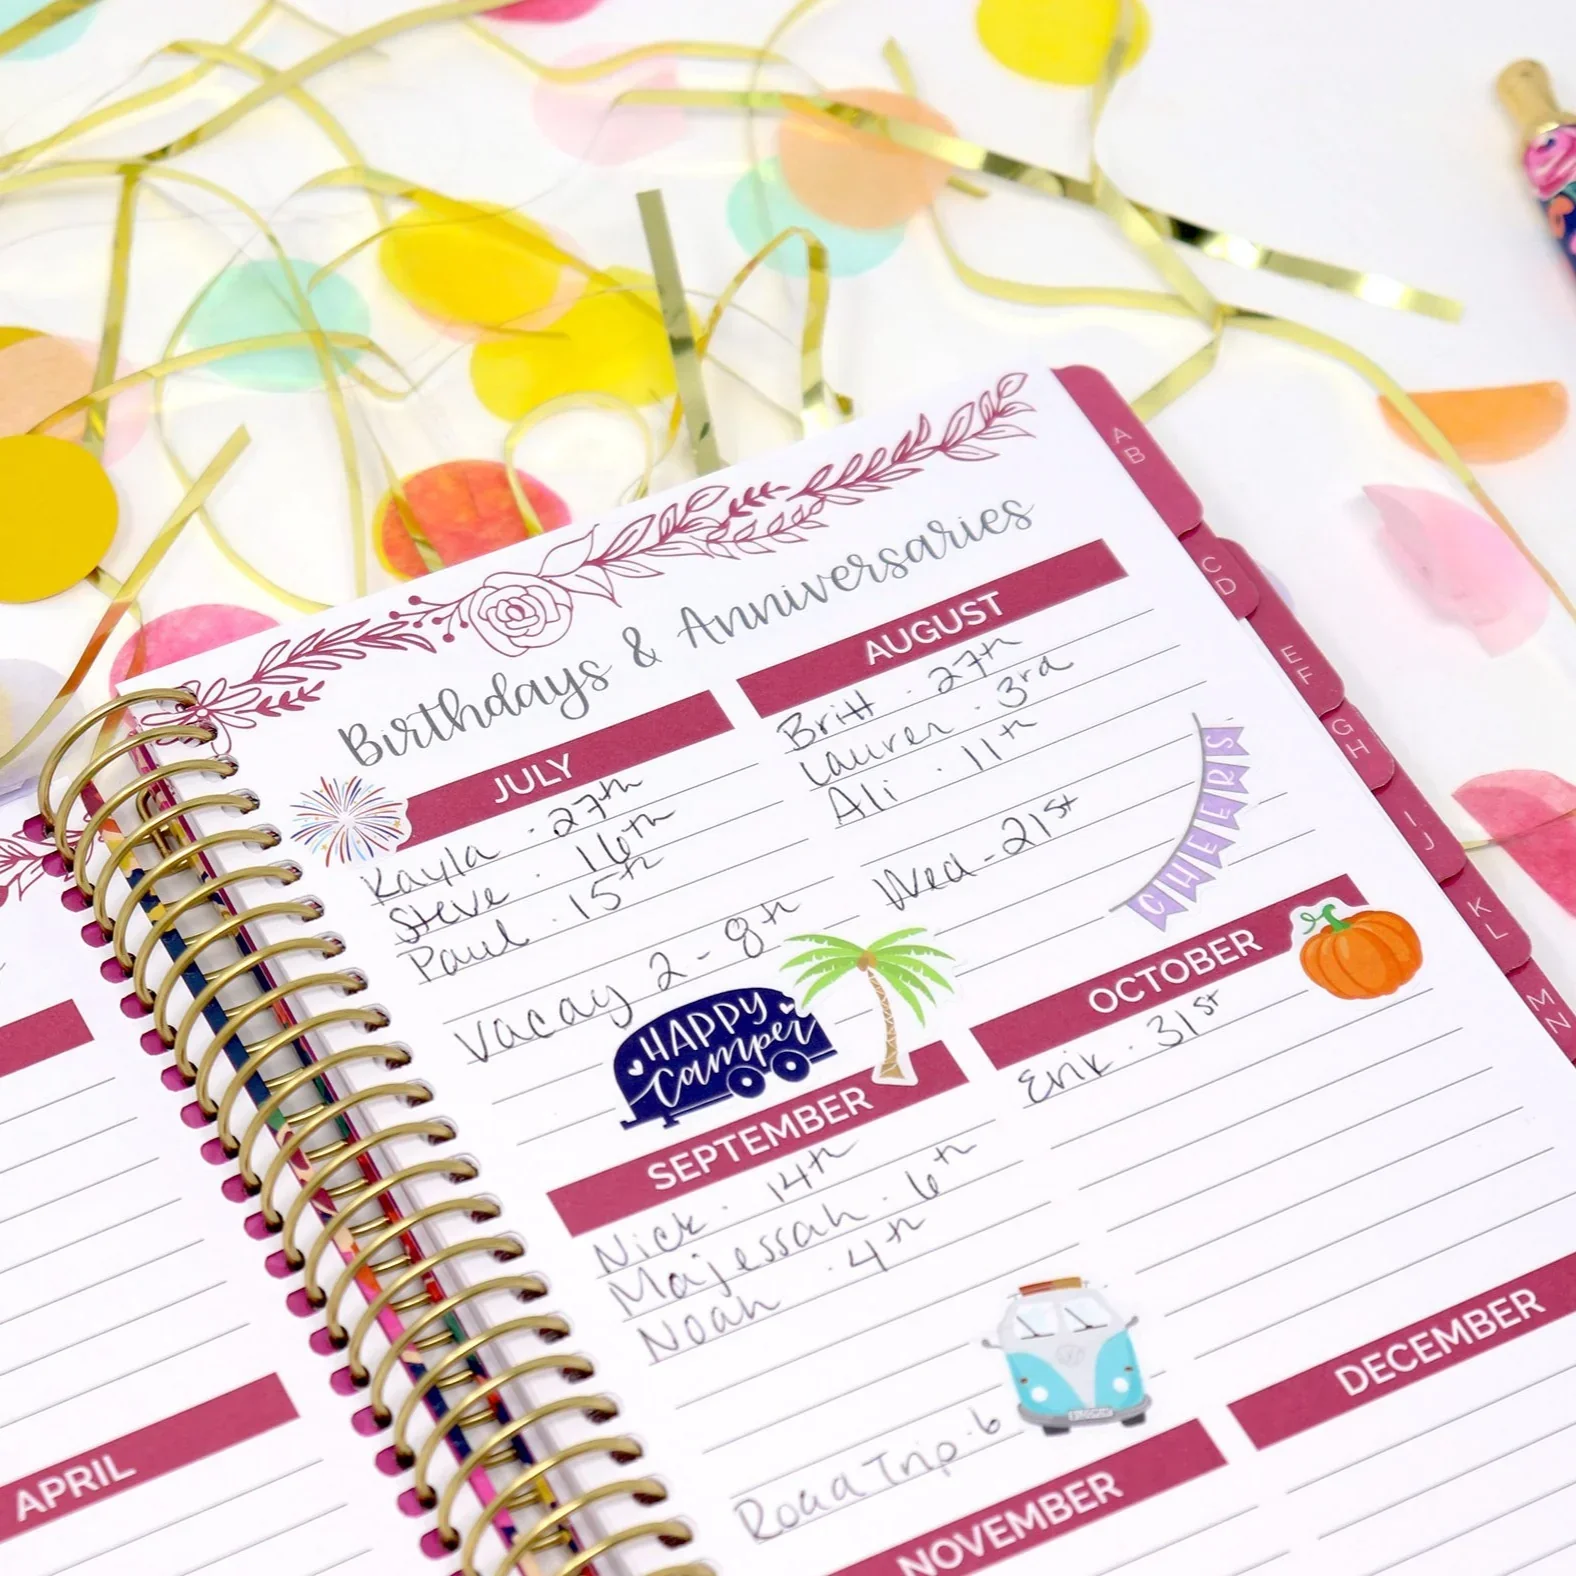 Birthdays & Anniversaries
JULY
Kayla · 27th
Steve · 16th
Paul · 15th
Vacay 2 - 8th
HAPPY
camper
AUGUST
Britt · 27th
Lauren · 3rd
Ali · 11th
Wed - 21st
CHEERS
SEPTEMBER
Nick · 14th
Majessah · 6th
Noah · 4th
Road Trip · 6
OCTOBER
Erik · 31st
NOVEMBER
DECEMBER
APRIL
A
B
C
D
E
F
G
H
I
J
K
L
M
N